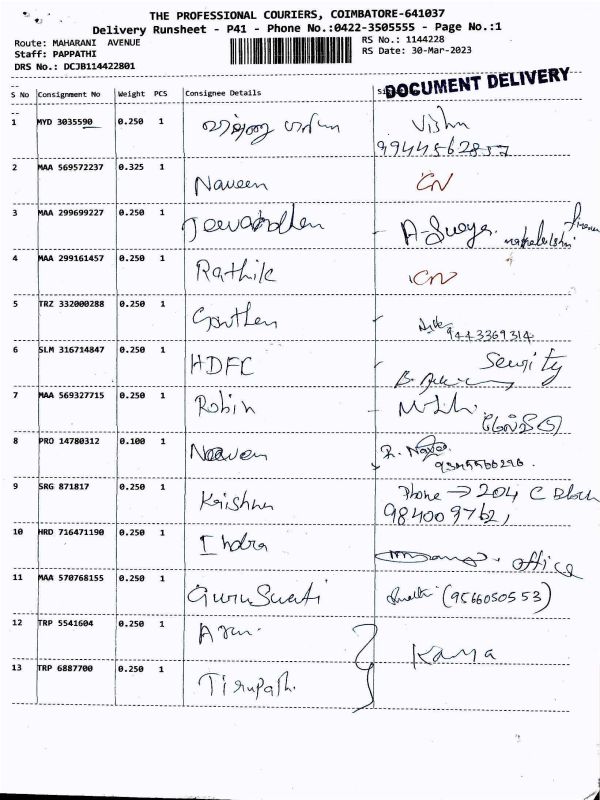 THE PROFESSIONAL COURIERS, COIMBATORE-641037
Delivery Runsheet - P41 - Phone No.:0422-3505555 - Page No.:1
Route: MAHARANI AVENUE
RS No.: 1144228
Staff: PAPPATHI
RS Date: 30-Mar-2023
DRS No.: DCJB114422801
DOCUMENT DELIVERY
S No Consignment No Weight PCS Consignee Details
1 MYD 3035590 0.250 1 Vishnu
2 MAA 569572237 0.325 1 Naveen CN
3 MAA 299699227 0.250 1
4 MAA 299161457 0.250 1 Rathik CN
5 TRZ 332000288 0.250 1 Gowthem
9443369314
6 SLM 316714847 0.250 1 HDFC
7 MAA 569327715 0.250 1 Robin
8 PRO 14780312 0.100 1 Naveen
9 SRG 871817 0.250 1 Krishna Phone → 204 C Block
10 HRD 716471190 0.250 1 Indra office
11 MAA 570768155 0.250 1 Guru Swati (9566050553)
12 TRP 5541604 0.250 1 Arun
Kanya
13 TRP 6887700 0.250 1 Tirupath